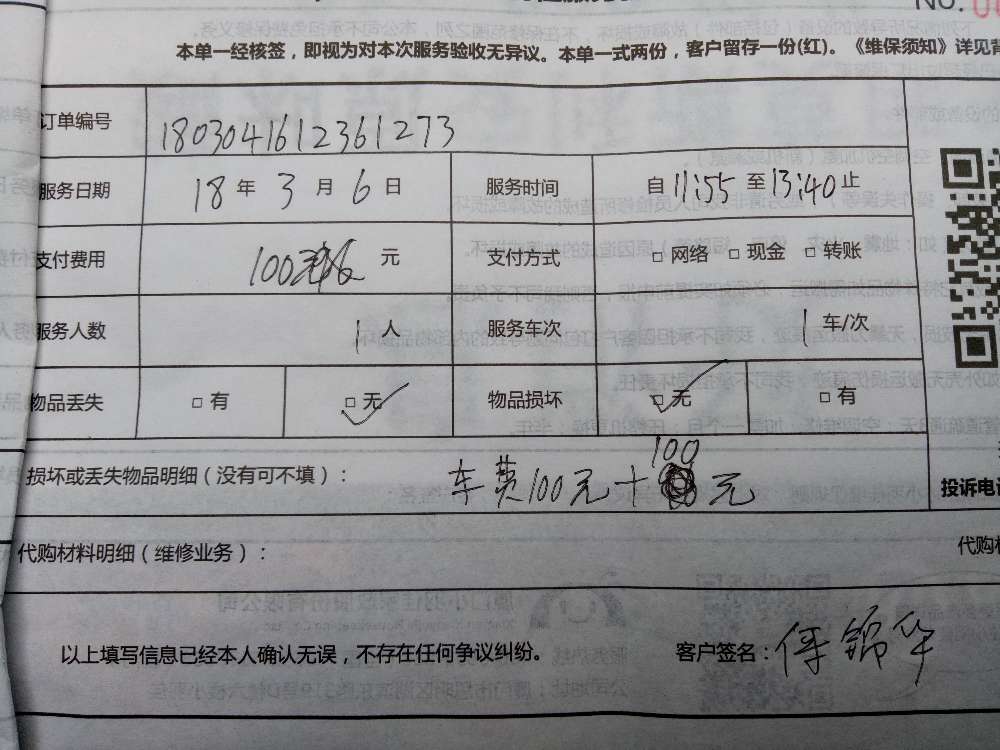 NO.
本单一经核签，即视为对本次服务验收无异议。本单一式两份，客户留存一份(红)。《维保须知》详见背
订单编号 1803041612361273
服务日期 18 年 3 月 6 日 服务时间 自 11:55 至 13:40 止
支付费用 100 元 支付方式 □ 网络 □ 现金 □ 转账
服务人数 1 人 服务车次 1 车/次
物品丢失 □ 有 □ 无 物品损坏 □ 无 □ 有
损坏或丢失物品明细（没有可不填）： 车费100元+100元
投诉电话
代购材料明细（维修业务）： 代购材
以上填写信息已经本人确认无误，不存在任何争议纠纷。 客户签名：